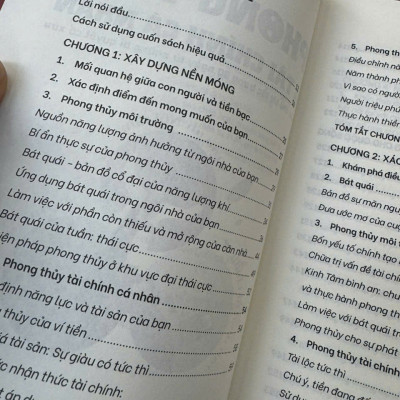 Lời nói đầu
Cách sử dụng cuốn sách hiệu quả
CHƯƠNG 1: XÂY DỰNG NỀN MÓNG
1. Mối quan hệ giữa con người và tiền bạc
2. Xác định điểm đến mong muốn của bạn
3. Phong thủy môi trường
Nguồn năng lượng ảnh hưởng từ ngôi nhà của bạn
Bí ẩn thực sự của phong thủy
Bát quái – bản đồ cổ đại của năng lượng khí
Ứng dụng bát quái trong ngôi nhà của bạn
Làm việc với phần còn thiếu và mở rộng của căn nhà
Bát quái của tuần: thái cực
iện pháp phong thủy ở khu vực đại thái cực
Phong thủy tài chính cá nhân
định năng lực và tài sản của bạn
thủy của ví tiền
iá tài sản: Sự giàu có tức thì
nhận thức tài chính:
5. Phong thủy
Điều chỉnh nă
Năm thành ph
Vì sao có người
Người triệu phú
Thực hành thiền
TÓM TẮT CHƯƠN
CHƯƠNG 2: XÁC
1. Khám phá điều
2. Bát quái
Bản đồ sự mãn nguy
Đưa ước mơ của cuộ
3. Phong thủy môi
Bốn yếu tố chính tạo
Chữa trị vấn đề tài chí
Kinh Tâm bình an: chu
và thực hành phong th
Làm việc với bát quái tr
Phong thủy cho sự phát
4. Phong thủy tài chính
Tài lộc tức thì
Chú ý, tiền đang đế
Sử dụn